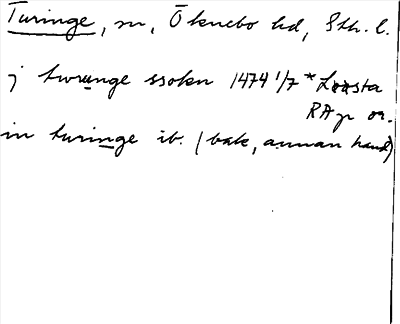 Turinge, sn, Öknebo hd, Sth. l.
j turunge ssokn 1474 1/7 * Loosta
RAp or.
in turinge ib. (bak, annan hand)